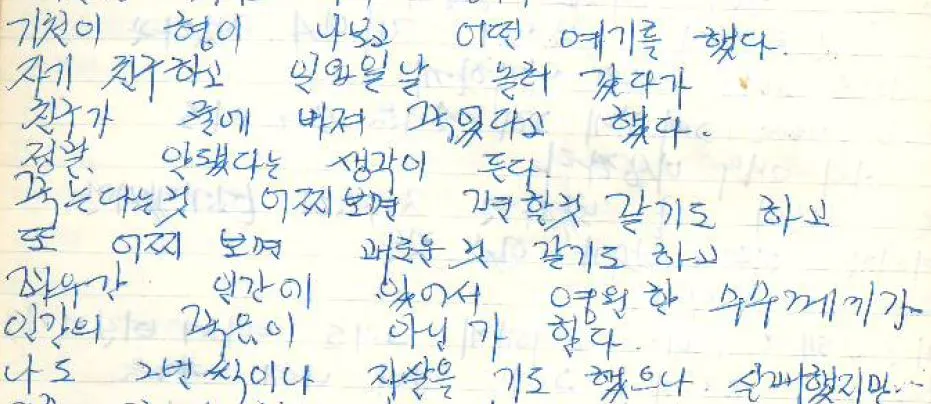 기천이 형이 나보고 어떤 예기를 했다.
자기 친구하고 일요일날 놀러 갔다가
친구가 물에 빠져 죽었다고 했다.
정말 안됐다는 생각이 든다
죽는다는것 어찌보면 편할것 같기도 하고
또 어찌 보면 괴로운 것 같기도 하고
인간이 있어서 영원한 수수께끼가
인간의 죽음이 아닌가 한다.
나도 2번씩이나 자살을 기도 했으나 실패했지만...